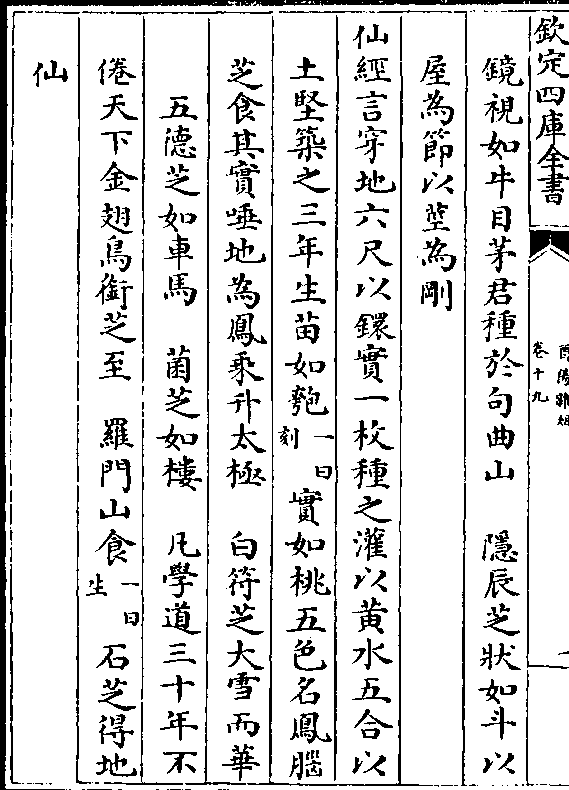 欽定四庫全書
酉陽雜俎
卷十九
鏡視如牛目茅君種於句曲山　隱辰芝狀如斗以
屋為節以莖為剛
仙經言穿地六尺以鐶實一枚種之灌以黄水五合以
土堅築之三年生苗如匏一曰刻實如桃五色名鳳腦
芝食其實唾地為鳳乘升太極　白符芝大雪而華
五德芝如車馬　菌芝如樓　凡學道三十年不
倦天下金翅鳥銜芝至　羅門山食一曰生石芝得地
仙